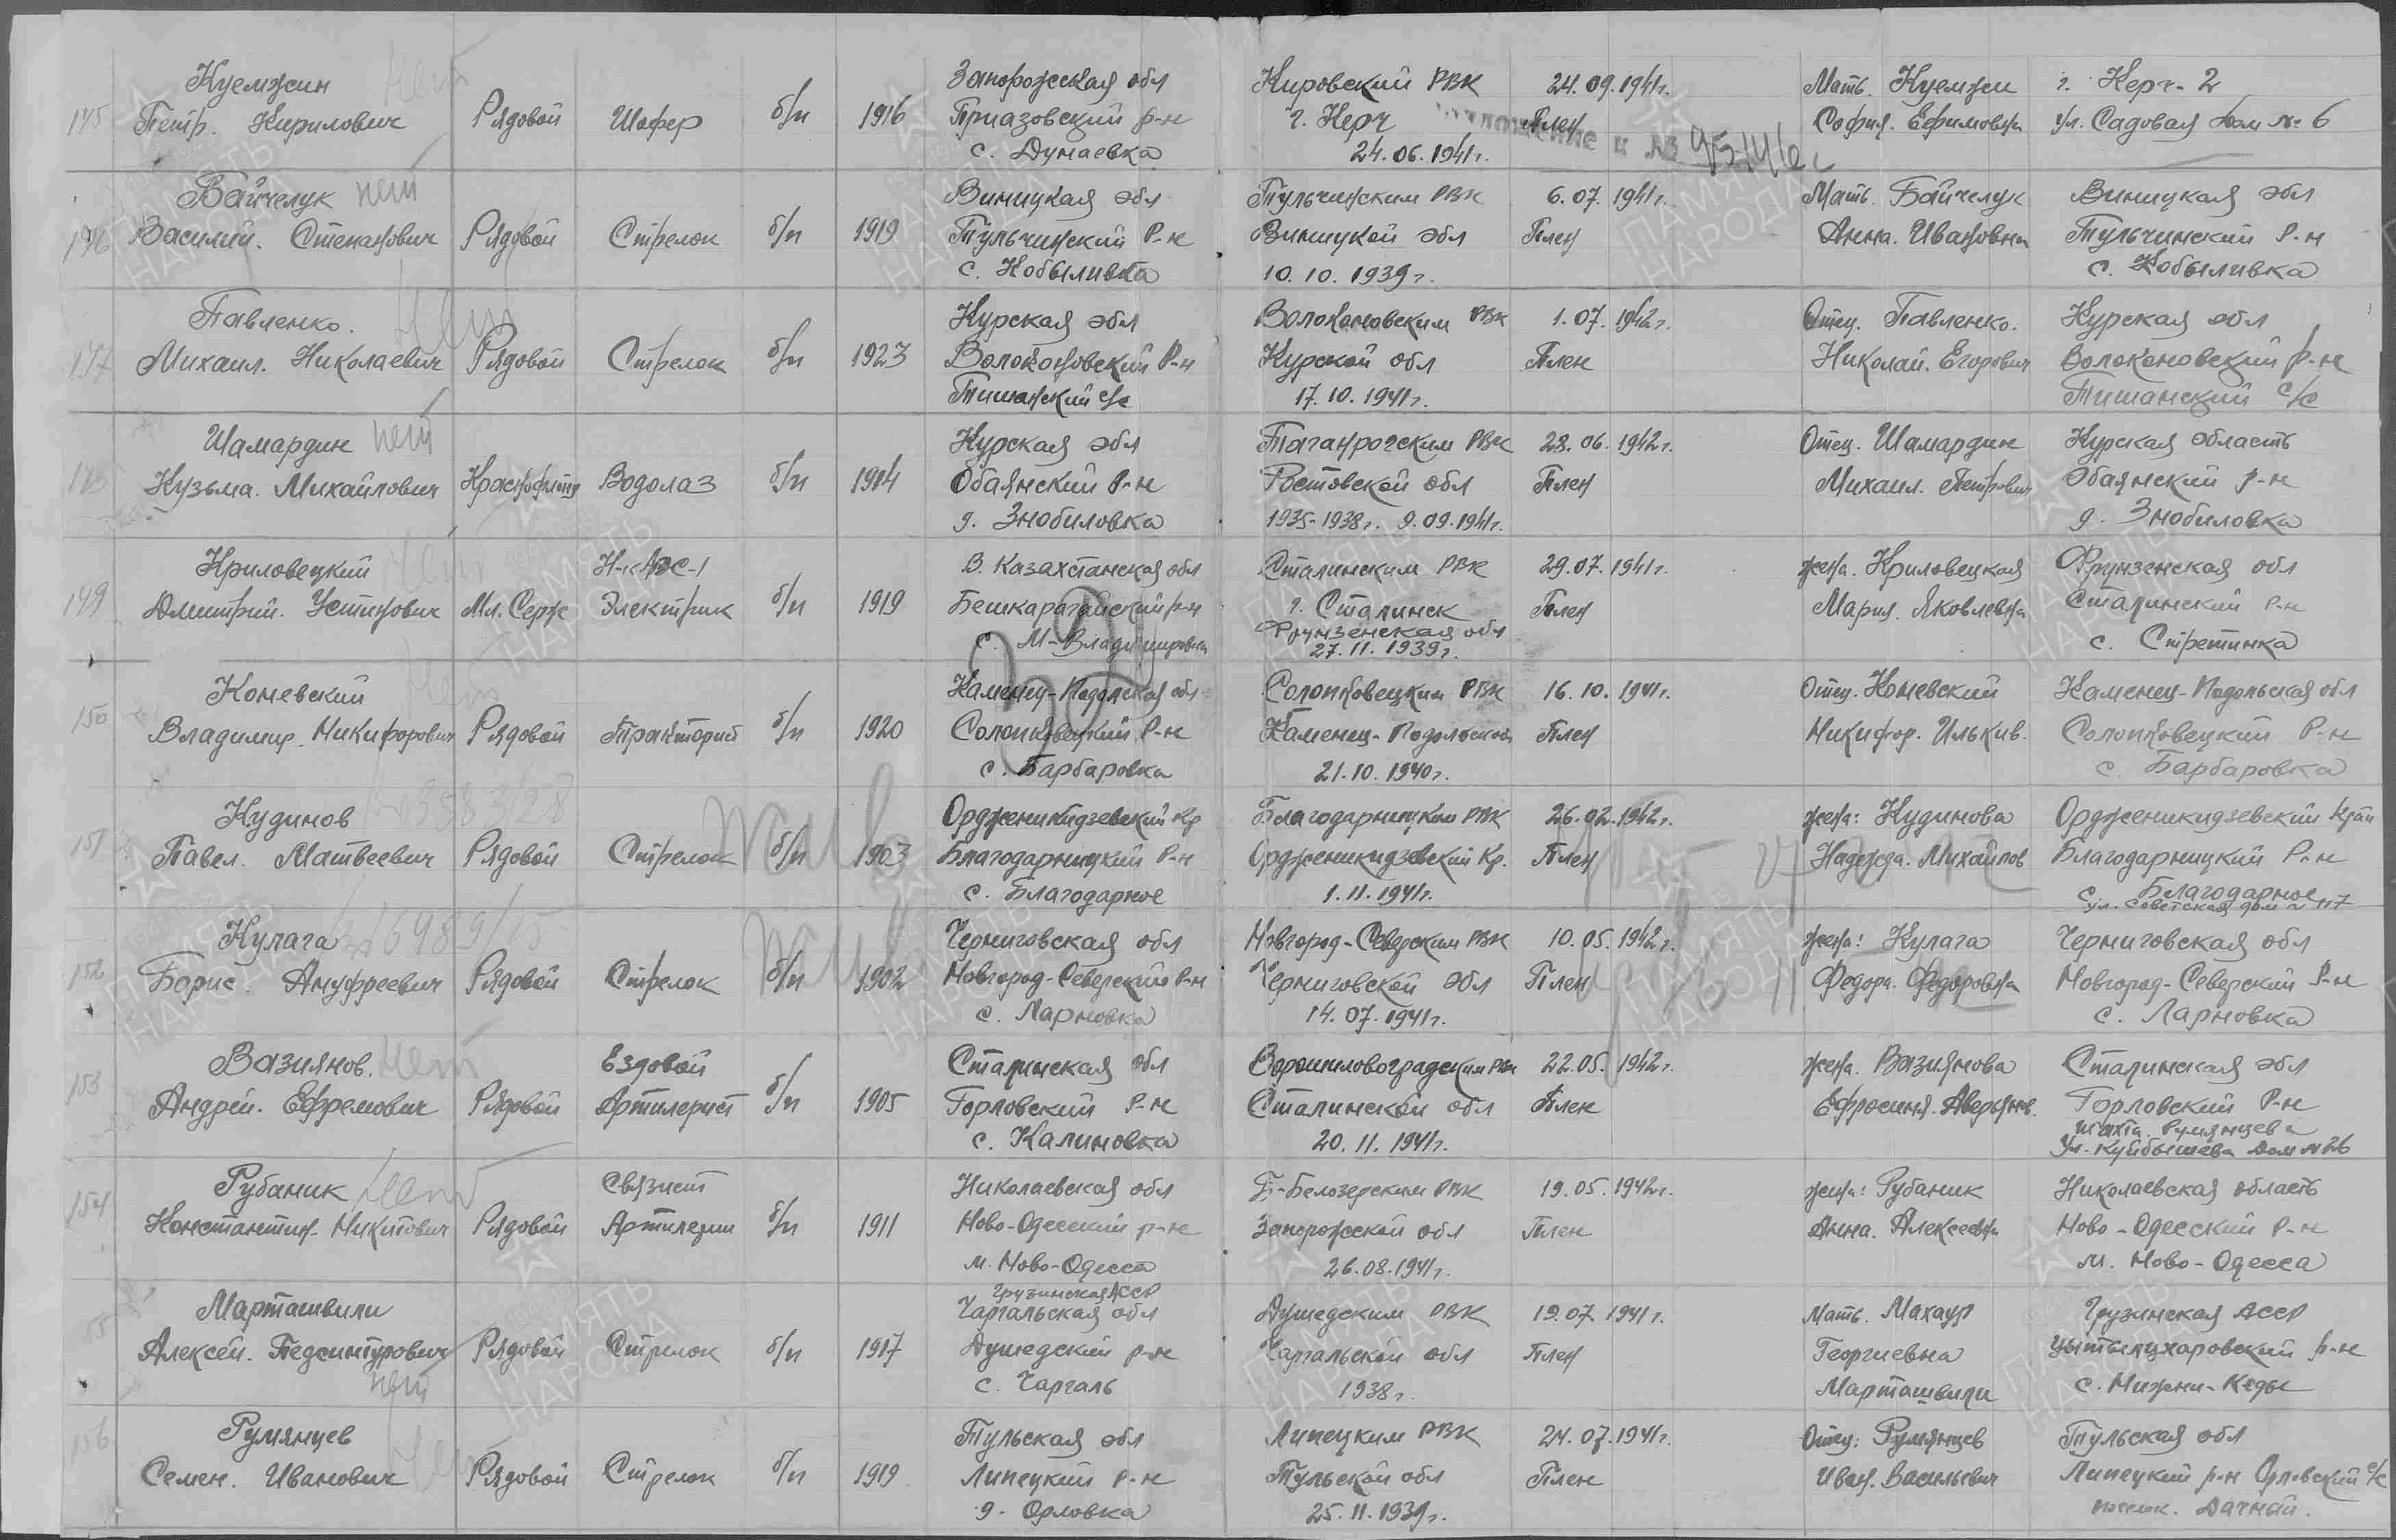 145 Куемжин Петр. Кирилович Рядовой Шофер б/п 1916 Запорожская обл Приазовский р-н с. Дунаевка Кировский РВК г. Керч 24.06.1941г. 24.09.1941г. Плен Мать. Куемжи София. Ефимовна г. Керч-2 ул. Садовая дом № 6
нет
146 Байчелук Василий. Степанович Рядовой Стрелок б/п 1919 Виницкая обл Тульчинский Р-н с. Кобыливка Тульчинским РВК Виницкой обл 10.10.1939г. 6.07.1941г. Плен Мать. Байчелук Анна. Ивановна Виницкая обл Тульчинский Р-н с. Кобыливка
нет
147 Павленко. Михаил. Николаевич Рядовой Стрелок б/п 1923 Курская обл Волоконовский Р-н Тишанский с/с Волоконовским РВК Курской обл 17.10.1941г. 1.07.1942г. Плен Отец. Павленко. Николай. Егорович Курская обл Волоконовский р-н Тишанский с/с
нет
Шамардин Кузьма. Михайлович Краснофлотец Водолаз б/п 1914 Курская обл Обаянский Р-н д. Знобиловка Таганрогским РВК Ростовской обл 1935-1938г. 9.09.1941г. 28.06.1942г. Плен Отец. Шамардин Михаил. Петрович Курская область Обаянский р-н д. Знобиловка
нет
149 Криловецкий Дмитрий. Устинович Мл. Серж Электрик б/п 1919 В. Казахстанская обл Бешкарагайский р-н с. М-Владимировка Сталинским РВК г. Сталинск Фрунзенская обл 27.11.1939г. 29.07.1941г. Плен жена. Криловецкая Мария. Яковлевна Фрунзенская обл Сталинский р-н с. Стретинка
нет
150 Коневский Владимир. Никифорович Рядовой Тракторист б/п 1920 Каменец-Подольская обл Солопковецкий Р-н с. Барбаровка Солопковецким РВК Каменец-Подольской 21.10.1940г. 16.10.1941г. Плен Отец. Коневский Никифор. Илькив. Каменец-Подольская обл Солопковецкий Р-н с. Барбаровка
нет
151 Кудинов Павел. Матвеевич Рядовой Стрелок б/п 1903 Орджекикидзевский Кр Благодарницкий Р-н с. Благодарное Благодарницким РВК Орджекикидзевский Кр. 1.11.1941г. 26.02.1942г. Плен жена: Кудинова Надежда. Михайлов Орджекикидзевский Край Благодарницкий Р-н с. Благодарное ул. Советская дом № 117
жив
152 Кулага Борис. Ануфреевич Рядовой Стрелок б/п 1902 Черниговская обл Новгород-Северский Р-н с. Ларновка Новгород-Северским РВК Черниговской обл 14.07.1941г. 10.05.1942г. Плен жена: Кулага Федора. Федоровна Черниговская обл Новгород-Северский Р-н с. Ларновка
жив
153 Вазиянов. Андрей. Ефремович Рядовой Ездовой Артилерист б/п 1905 Сталинская обл Горловский Р-н с. Калиновка Ворошиловоградским РВК Сталинской обл 20.11.1941г. 22.05.1942г. Плен жена. Вазиянова Ефросиня. Аверьянов. Сталинская обл Горловский Р-н шахта. Румянцева Ул. Куйбышева Дом № 26
нет
154 Рубаник Константин. Никитович Рядовой Связист Артилерии б/п 1911 Николаевская обл Ново-Одесский р-н м. Ново-Одесса Б-Белозерским РВК Запорожской обл 26.08.1941г. 19.05.1942г. Плен жена: Рубаник Анна. Алексеевна Николаевская область Ново-Одесский Р-н м. Ново-Одесса
нет
155 Марташвили Алексей. Педсинтурович Рядовой Стрелок б/п 1917 Грузинская АССР Чаргальская обл Душедский р-н с. Чаргаль Душедским РВК Чаргальской обл 1938г. 19.07.1941г. Плен Мать. Махаур Георгиевна Марташвили Грузинская АССР Цытылцхаровский р-н с. Нижни-Кеды
нет
156 Румянцев Семен. Иванович Рядовой Стрелок б/п 1919 Тульская обл Липецкий р-н д. Орловка Липецким РВК Тульской обл 25.11.1939г. 24.07.1941г. Плен Отец: Румянцев Иван. Васильевич Тульская обл Липецкий р-н Орловский с/с поселок. Дачный.
нет